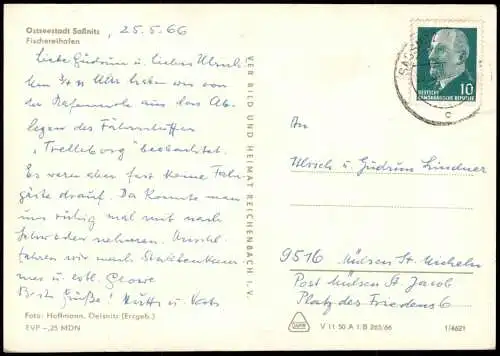 Ostseestadt Saßnitz
Fischereihafen
25.5.66
Liebe Gudrun u. lieber Ulrich
Um ¾ 11 Uhr haben wir von
der Hafenmole aus das Ab-
legen des Fährschiffes
"Trelleborg" beobachtet.
Es waren aber fast keine Fahr-
gäste drauf. Da könnte man
uns ruhig mal mit nach
Schweden nehmen. Anschl.
fahren wir nach Stubbenkam-
mer u. evtl. Glowe
Beste Grüße! Mutti u. Vati
Foto: Hoffmann, Oelsnitz (Erzgeb.)
EVP –,25 MDN
VEB BILD UND HEIMAT REICHENBACH I. V.
10
DEUTSCHE
DEMOKRATISCHE REPUBLIK
c
An
Ulrich u. Gudrun Lindner
9516 Mülsen St. Micheln
Post Mülsen St. Jacob
Platz des Friedens 6
V 11 50 A 1/B 265/66
1/4621